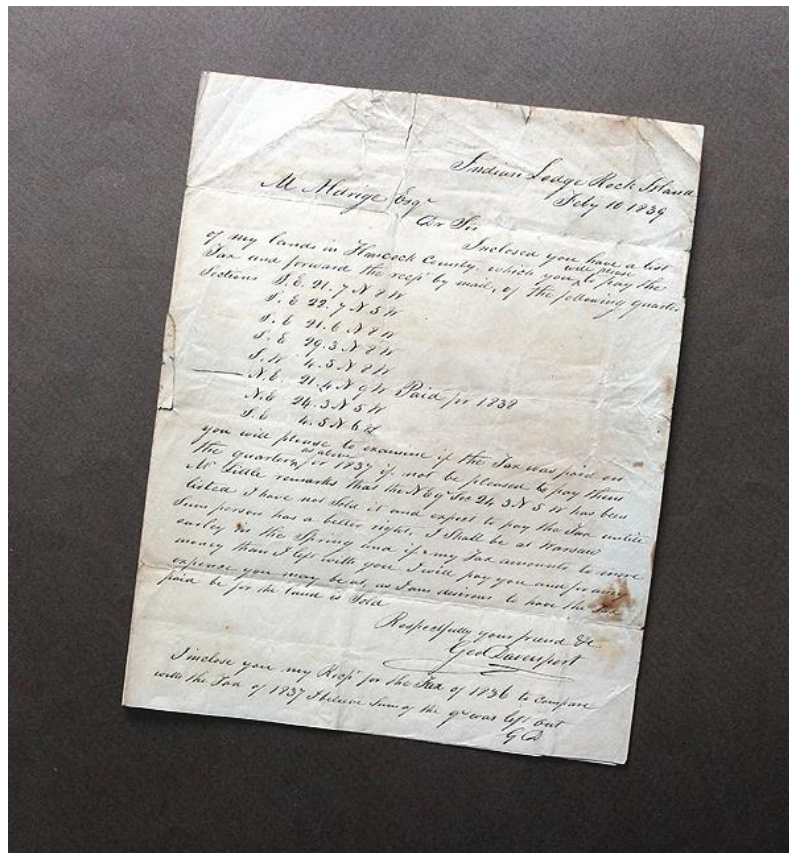 Indian Lodge Rock Island
Feby 10 1839
M Aldrige Esqr
Dr Sir
Inclosed you have a list
of my lands in Hancock County, which you will please to pay the
Tax and forward the recpt by mail, of the following quarter
Sections S.E. 21. 7 N 8 W
S. E 22. 7 N 5 W
S. E 21. 6 N 8 W
S. E 29. 3 N 8 W
S. W 4. 5 N 8 W
N. E. 21. 4 N 9 W Paid for 1838
N. E 24. 3 N 5 W
S. E 4. 5 N 6 W
you will please to examine if the Tax was paid on
the quarters as above for 1837 if not be pleased to pay them
Mr Little remarks that the N E qr Sec 24 3 N 5 W has been
listed I have not Sold it and expect to pay the Tax untill
Sum person has a better right, I Shall be at Warsaw
earley in the Spring and if my Tax amounts to more
money than I left with you I will pay you and for any
expence you may be at, as I am desirous to have the Tax
paid be for the land is Sold
Respectfully your friend &c
Geo Davenport
I inclose you my Recpt for the Tax of 1836 to compare
with the Tax of 1837 I believe Sum of the qr was left out
G D